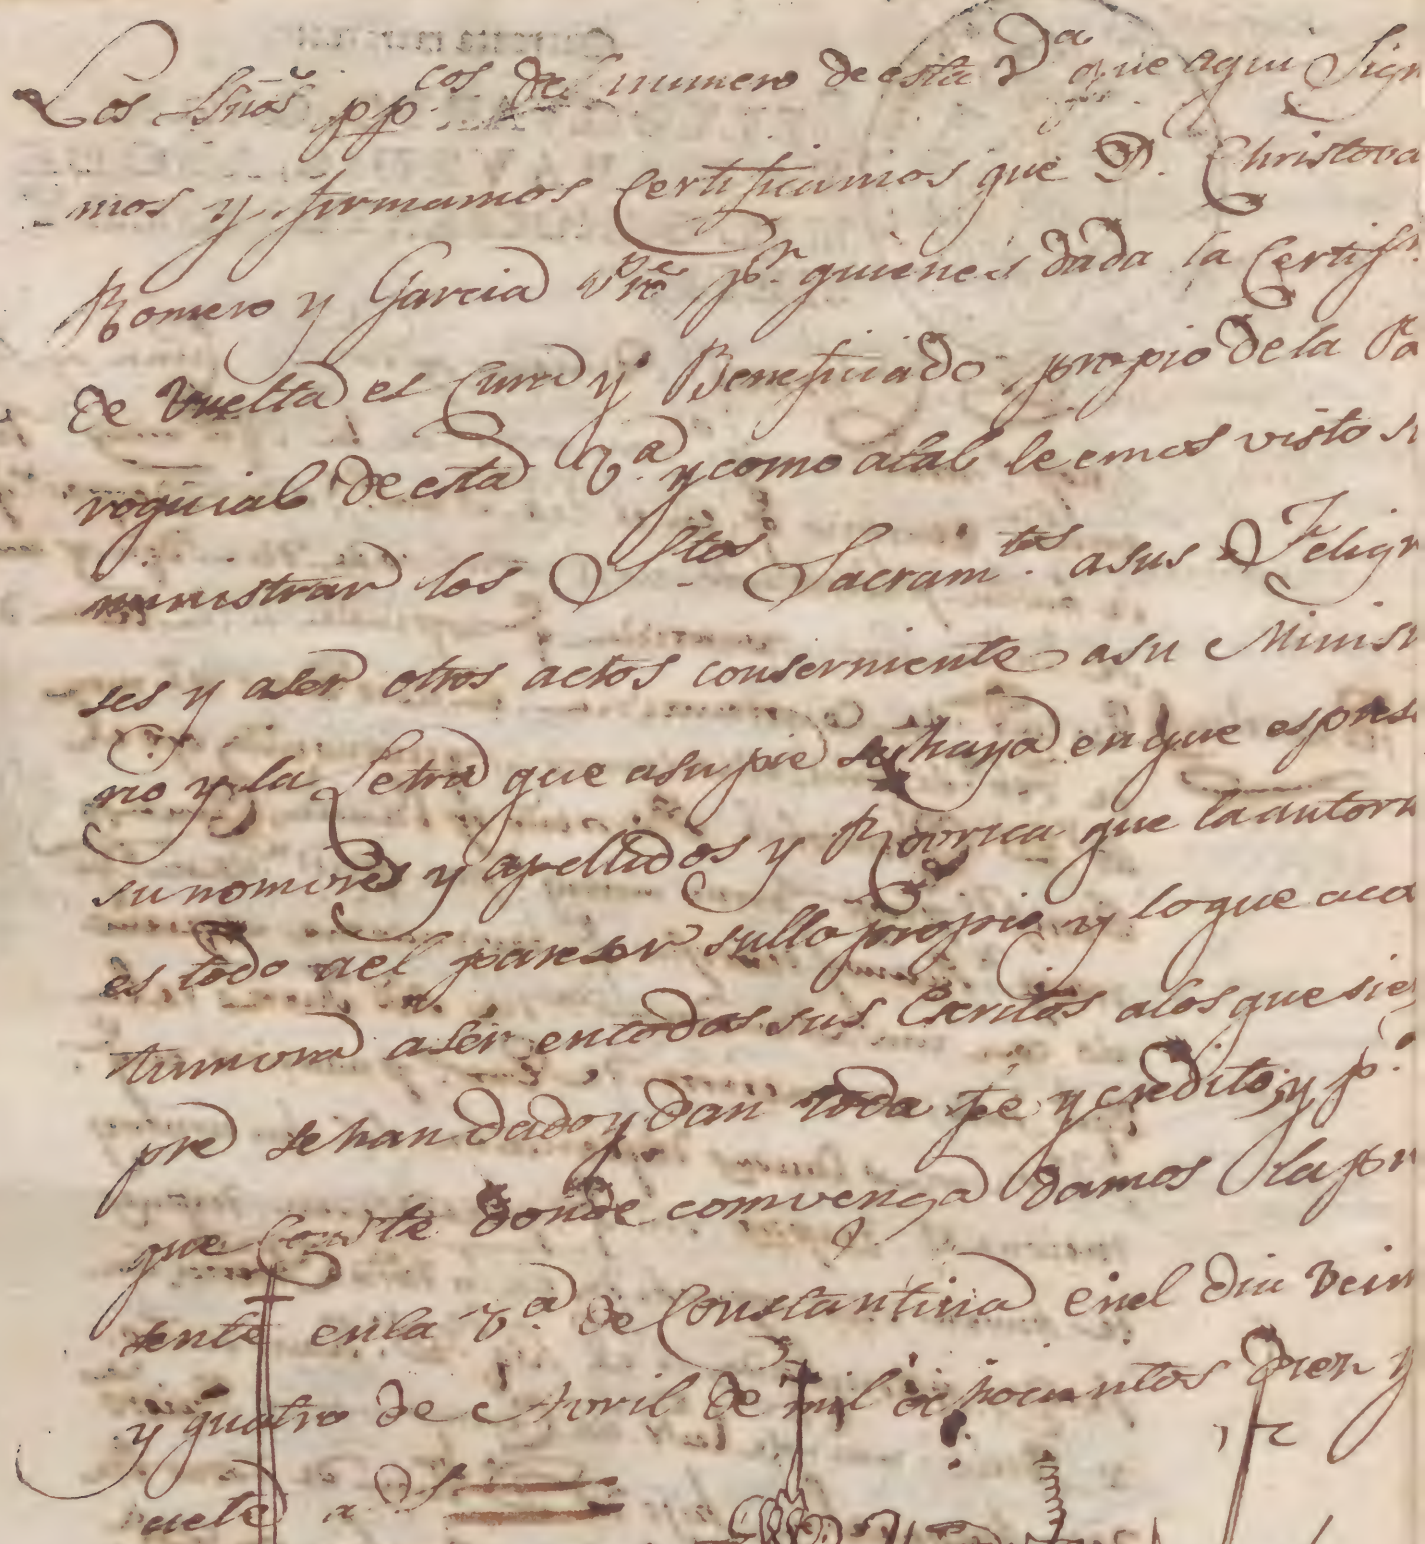 Los Essnos ppcos del numero de esta Va que aqui Sign
mos y firmamos Certificamos que D. Christova
Romero y Garcia Pre pr quien es dada la Certifon
de Vuelta es Cura y Beneficiado propio de la Pa
roquial de esta Va y como atal le emos visto su
ministrar los Stos Sacramtos asus Feligr
ses y aser otros actos conserniente asu Minist
rio y la Letra que asu pie se haya en que espresa
su nombres y apellidos y Rubrica que la autori
es todo ael pareser sullo propio y lo que aco
tumvra aser en todos sus Escritos alos que siem
pre se han dado y dan toda fe y credito; y pa
que Conste donde comvenga damos la pre
sente en la Va de Constantina en el dia Vein
y quatro de Abril de mil ochocientos diez y
siete as